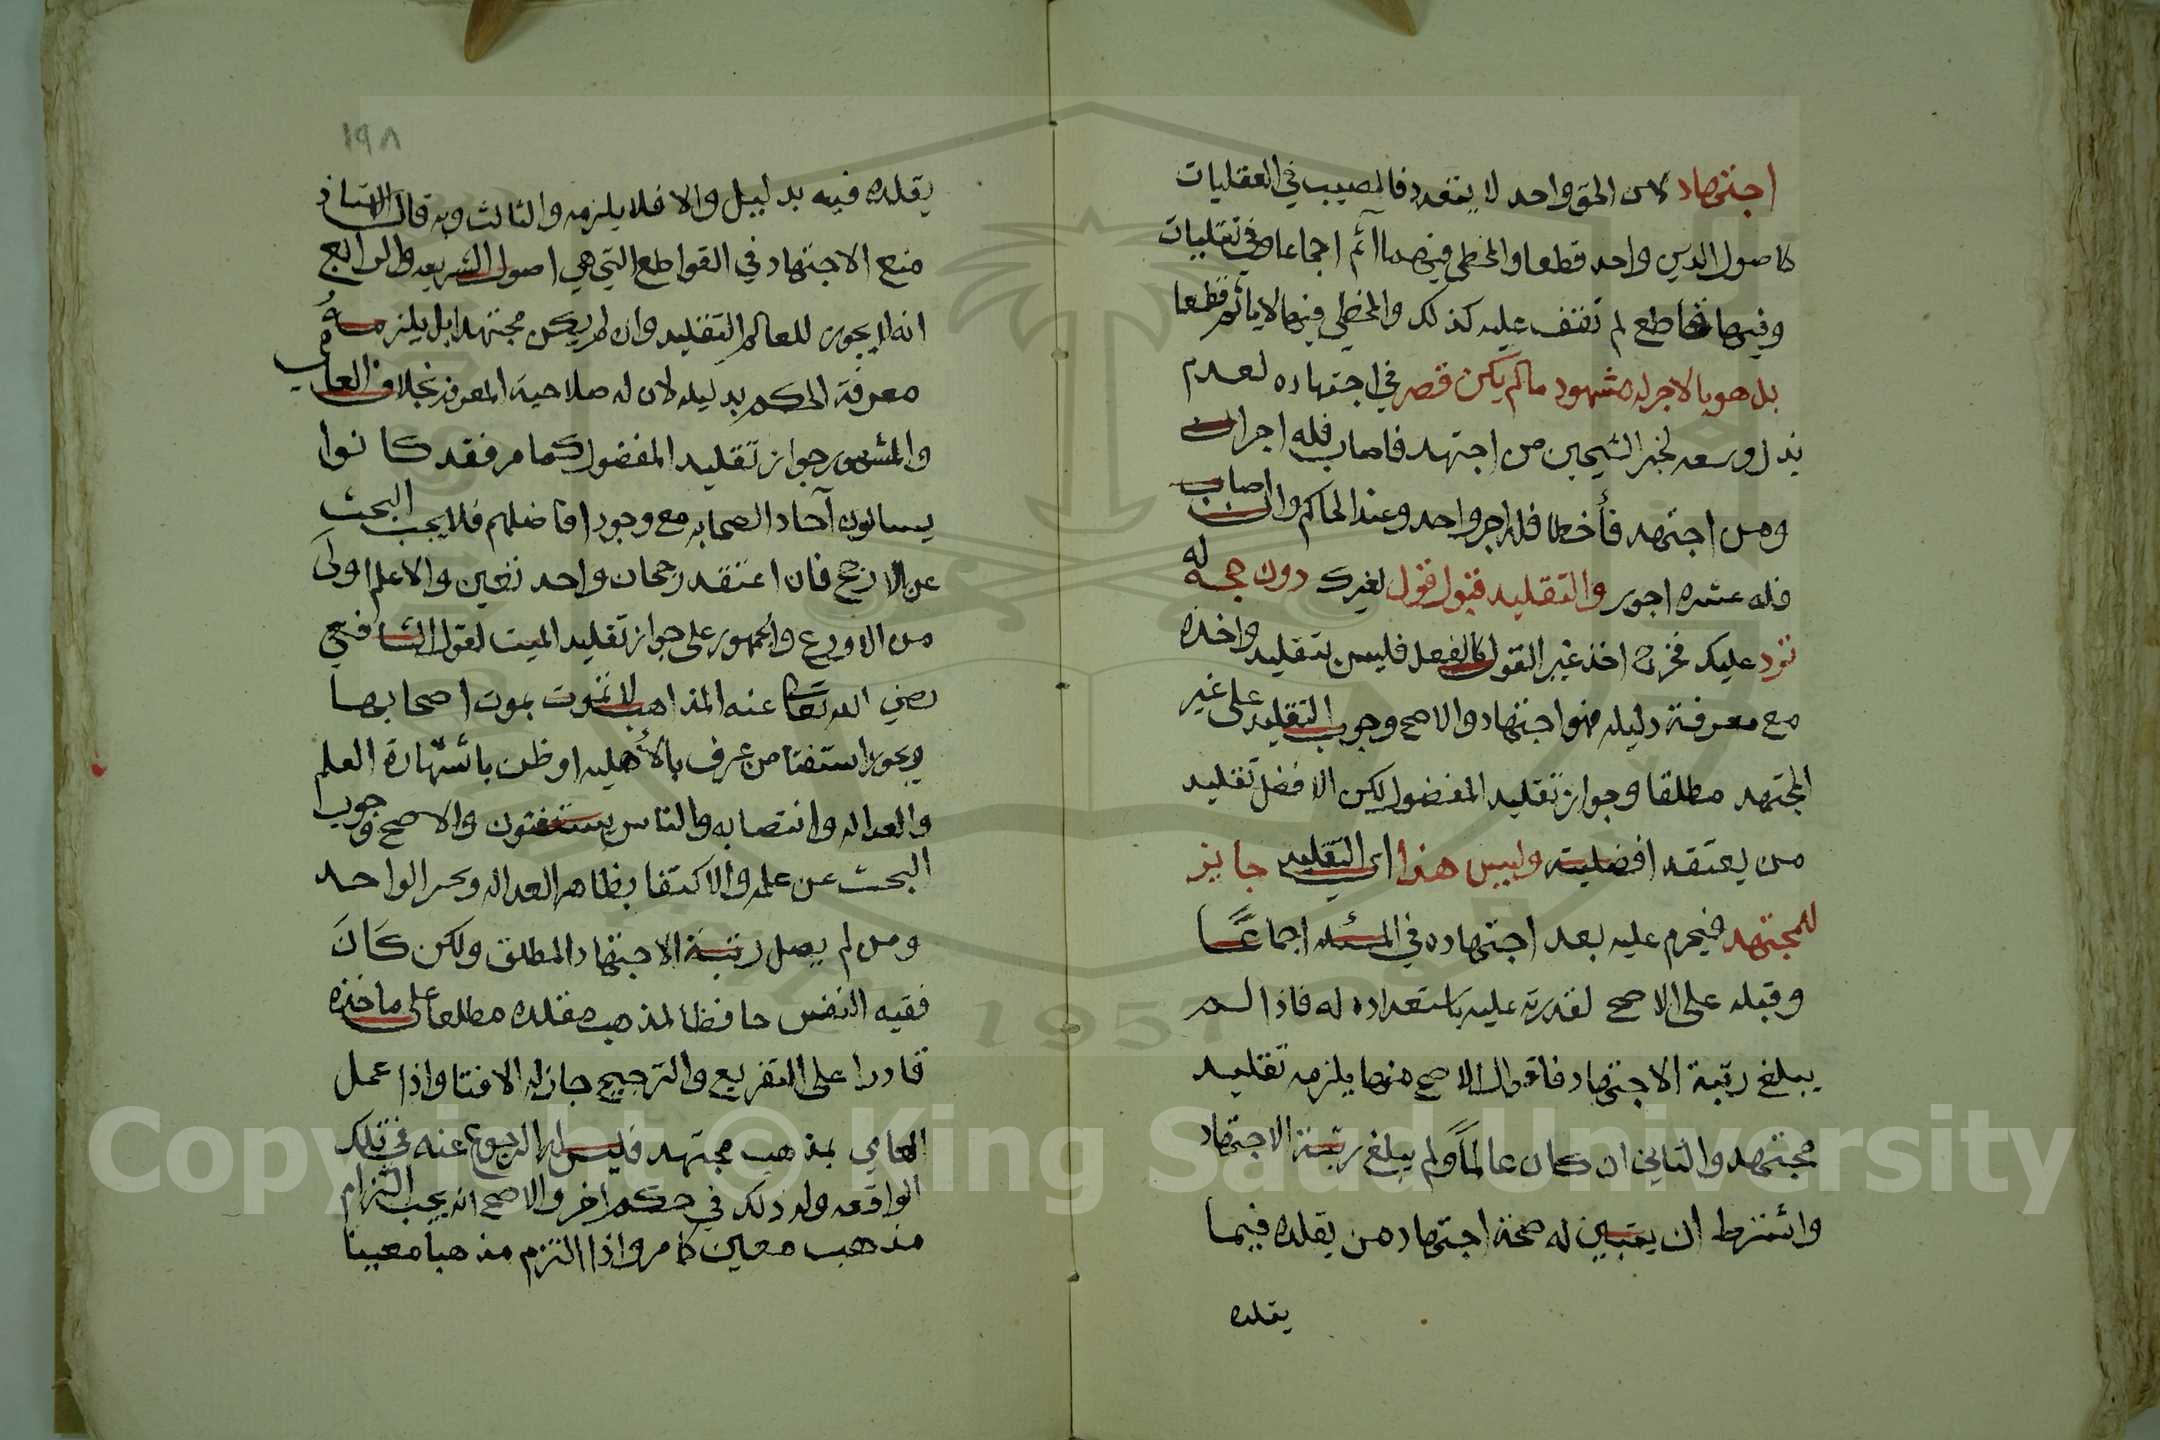 اجتهاد لان الحق واحد لا يتعدد فالمصيب في العقليات
كاصول الدين واحد قطعا والمخطي فيهما آثم اجماعا وفي نقليات
وفيها قاطع لم تقتف عليه كذلك والمخطي فيها لا ياثم قطعا
بل هو بالاجر له مشهود ما لم يكن قصر في اجتهاده لعدم
بذل وسعه لخبر الشيخين من اجتهد فاصاب فله اجران
ومن اجتهد فأخطا فله اجر واحد وعند الحاكم وان اصاب
فله عشره اجور والتقليد قبول قول لغيرك دون حجه له
تود عليك فخرج اخذ غير القول كالفعل فليس بتقليد واخذه
مع معرفة دليله فهو اجتهاد والاصح وجوب التقليد على غير
المجتهد مطلقا وجواز تقليد المفضول لكن الافضل تقليد
من يعتقد افضليته وليس هذا اي التقليد جايز
للمجتهد فيحرم عليه بعد اجتهاده في المسئله اجماعًا
وقبله على الاصح لقدرته عليه باستعداده له فاذا لم
يبلغ رتبة الاجتهاد فاقوال الاصح منها يلزمه تقليد
مجتهد والثاني ان كان عالمًا ولم يبلغ رتبة الاجتهاد
واشترط ان يتبين له صحة اجتهاد من يقلده فيما
يقلده
١٩٨
يقلده فيه بدليل والا فلا يلزمه والثالث وبه قال الاستاذ
منع الاجتهاد في القواطع التي هي اصول الشريعه والرابع
انه لا يجوز للعالم التقليد وان لم يكن مجتهدا بل يلزمه
معرفة الحكم بدليله لان له صلاحية المعرفة بخلاف العامي
والمشهور جواز تقليد المفضول كما مر فقد كانوا
يسالون آحاد الصحابه مع وجود افاضلهم فلا يجب البحث
عن الارجح فان اعتقد رجحان واحد تعين والاعلم اولى
من الاورع والجمهور على جواز تقليد الميت لقول الشافعي
رضي الله تعا عنه المذاهب لا تموت بموت اصحابها
ويجوز استفتا من عرف بالأهليه او ظن باشتهارة العلم
والعداله وانتصابه والناس يستفتون والاصح وجوب
البحث عن علمه والاكتفا بظاهر العداله وبخبر الواحد
ومن لم يصل رتبة الاجتهاد المطلق ولكن كان
فقيه النفس حافظا لمذهب مقلده مطلعا على ماخذه
قادرا على التفريع والترجيح جاز له الافتا واذا عمل
العامي بمذهب مجتهد فليس له الرجوع عنه في تلك
الواقعه وله ذلك في حكم اخر والاصح انه يجب التزام
مذهب معين كما مر واذا التزم مذهبا معينا
Copyright © King Saud University
1957